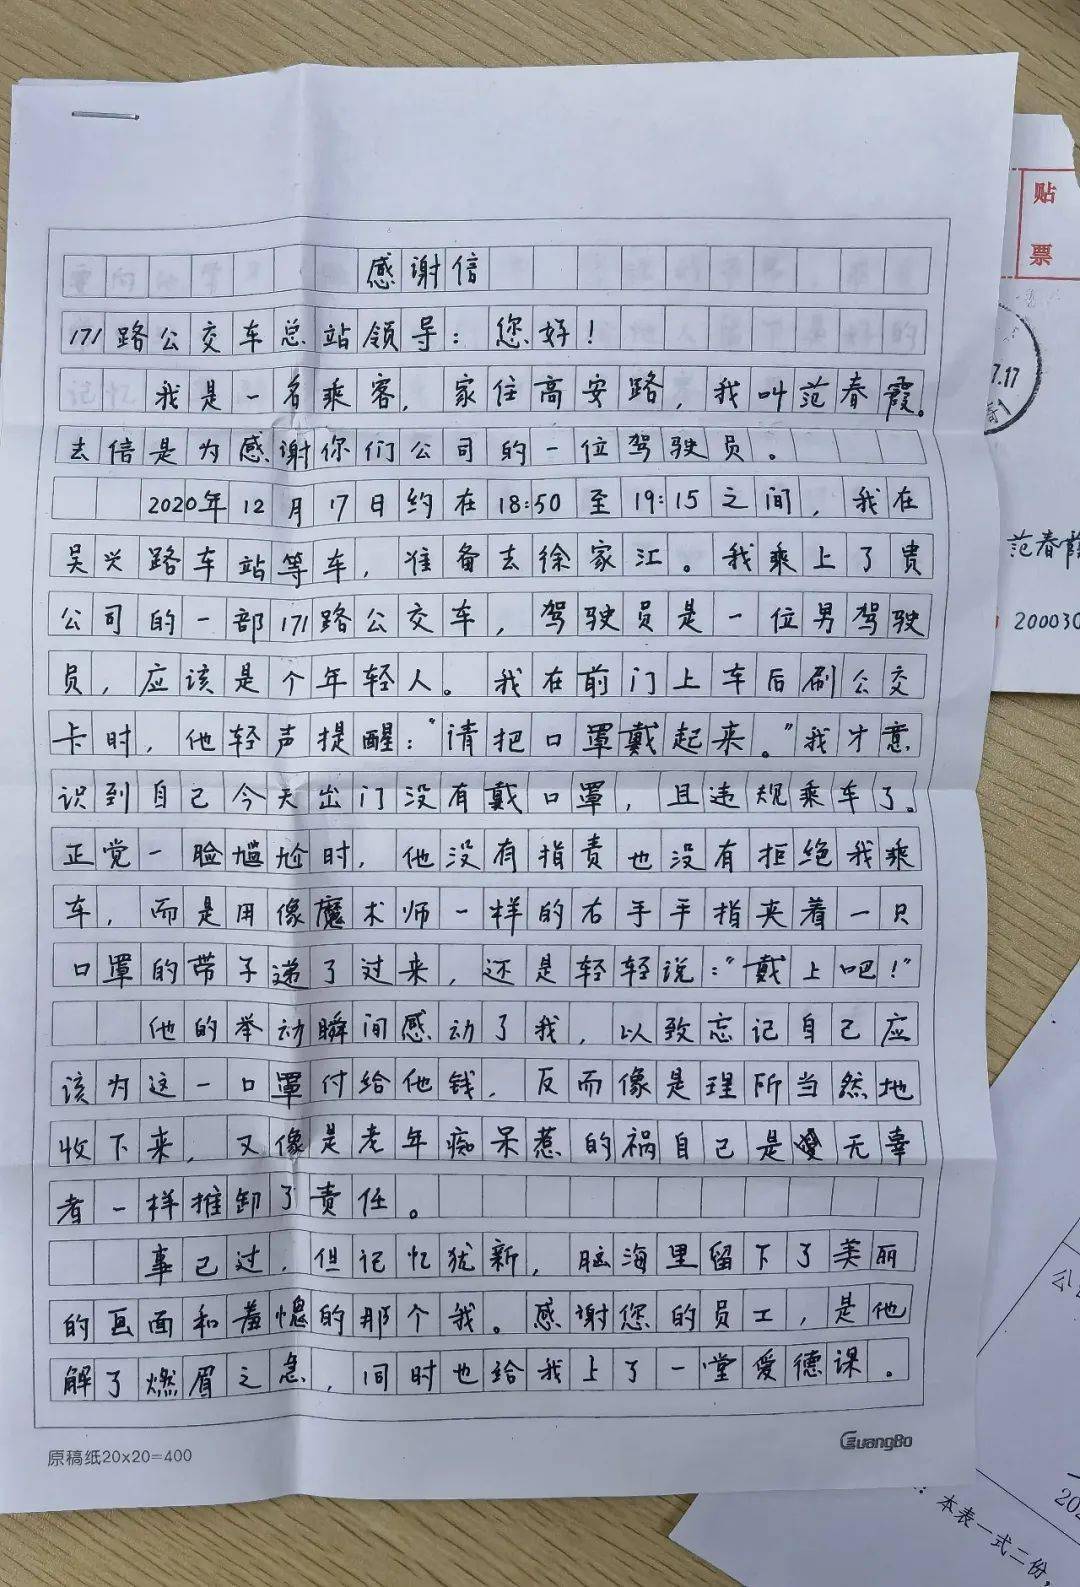 感谢信
171路公交车总站领导：您好！
我是一名乘客，家住高安路，我叫范春霞。
去信是为感谢你们公司的一位驾驶员。
2020年12月17日约在18:50至19:15之间，我在
吴兴路车站等车，准备去徐家江。我乘上了贵
公司的一部171路公交车，驾驶员是一位男驾驶
员，应该是个年轻人。我在前门上车后刷公交
卡时，他轻声提醒：“请把口罩戴起来。”我才意
识到自己今天出门没有戴口罩，且违规乘车了。
正觉一脸尴尬时，他没有指责也没有拒绝我乘
车，而是用像魔术师一样的右手手指夹着一只
口罩的带子递了过来，还是轻轻说：“戴上吧！”
他的举动瞬间感动了我，以致忘记自己应
该为这一口罩付给他钱，反而像是理所当然地
收下来，又像是老年痴呆惹的祸自己是无辜
者一样推卸了责任。
事已过，但记忆犹新，脑海里留下了美丽
的画面和羞愧的那个我。感谢您的员工，是他
解了燃眉之急，同时也给我上了一堂爱德课。
原稿纸20x20=400
GuangBo
贴
票
7.17
范春霞
200030
公
202
本表一式二份，